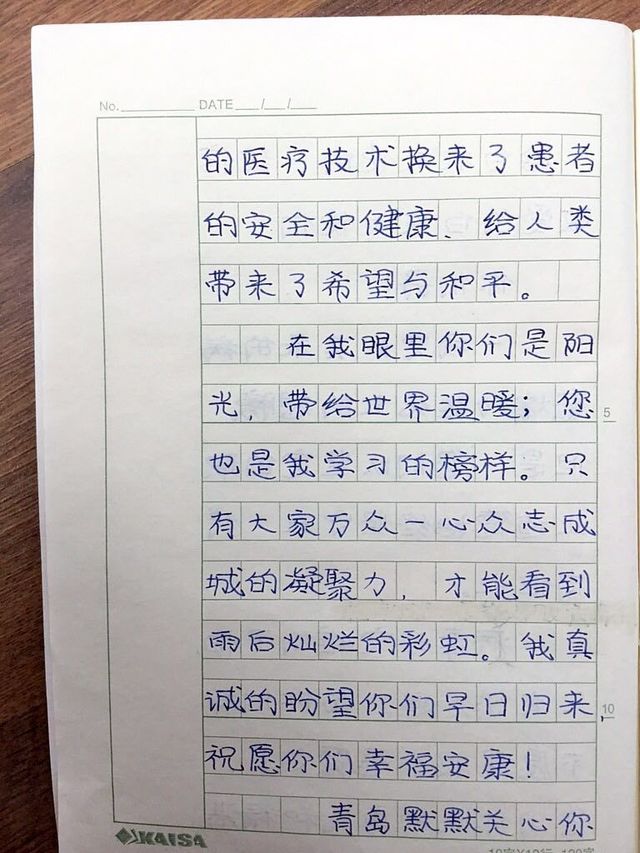 No. DATE / /
的医疗技术换来了患者
的安全和健康、给人类
带来了希望与和平。
在我眼里你们是阳
光，带给世界温暖；您
5
也是我学习的榜样。只
有大家万众一心众志成
城的凝聚力，才能看到
雨后灿烂的彩虹。我真
诚的盼望你们早日归来，
10
祝愿你们幸福安康！
青岛默默关心你
KAISA